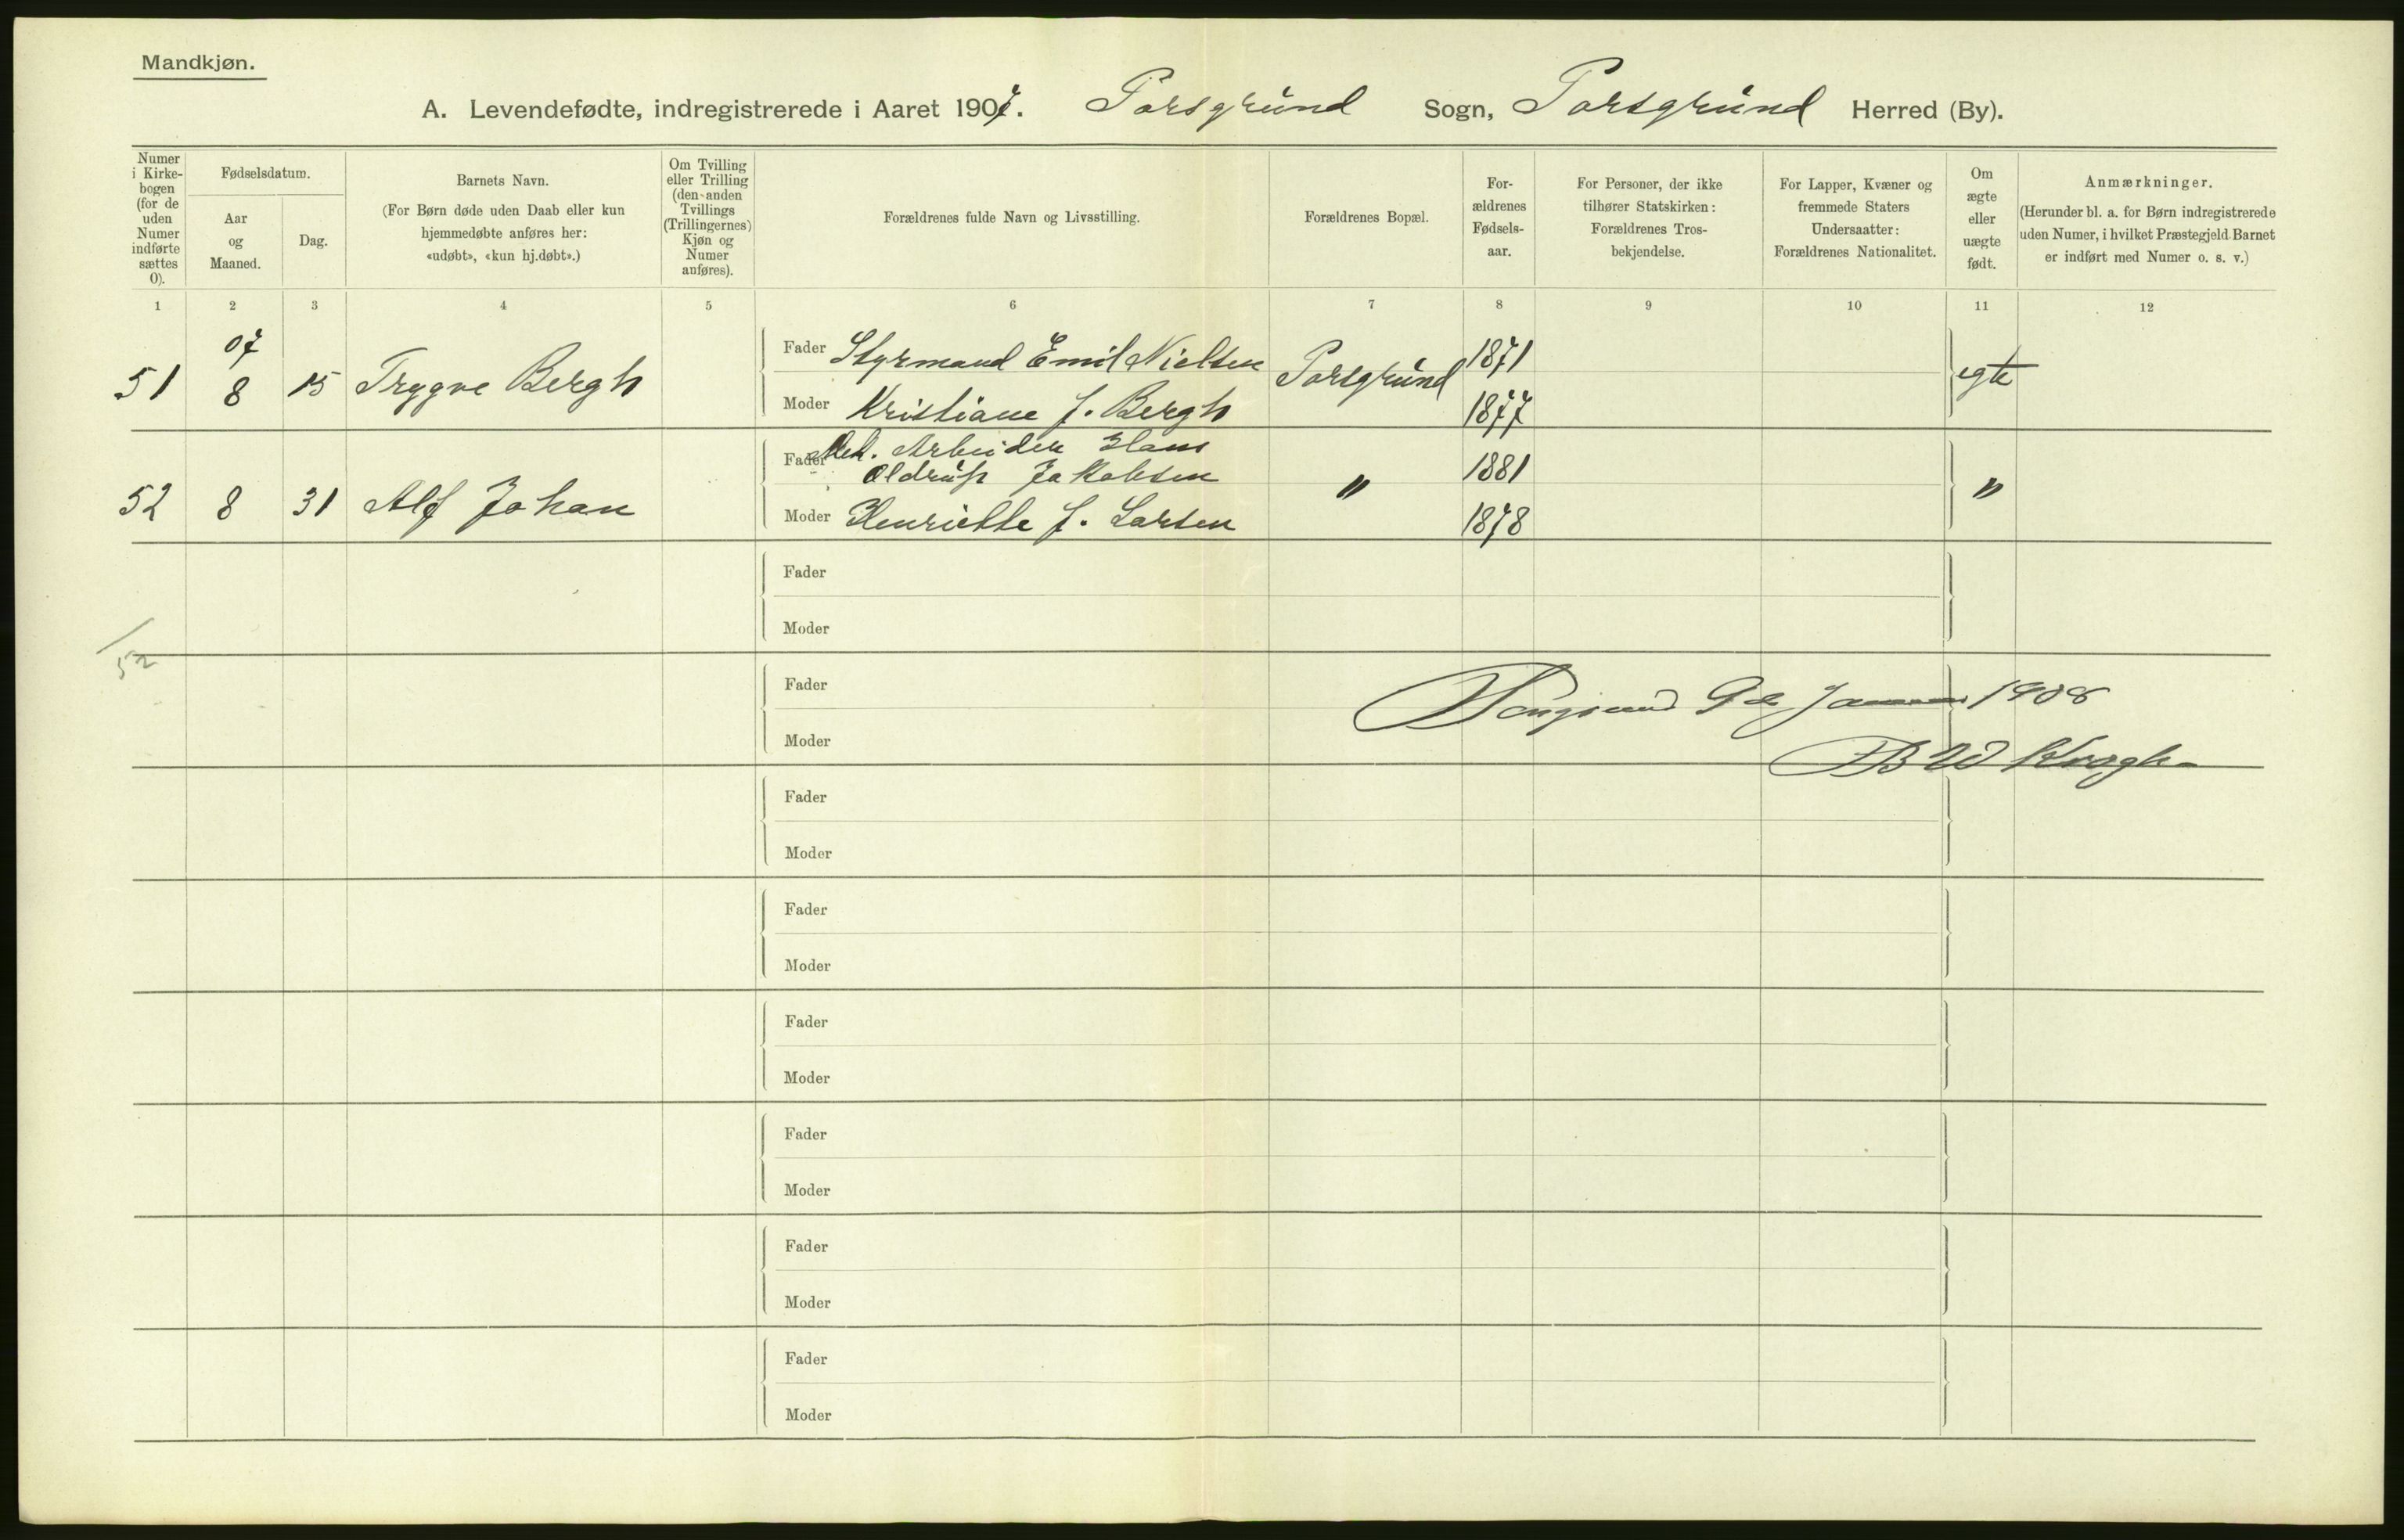 Mandkjøn.
A. Levendefødte, indregistrerede i Aaret 1907. Porsgrund Sogn, Porsgrund Herred (By).
Numer i Kirkebogen (for de uden Numer indførte sættes 0).
Fødselsdatum.
Aar og Maaned.
Dag.
Barnets Navn.
(For Børn døde uden Daab eller kun
hjemmedøbte anføres her:
«udøbt», «kun hj.døbt».)
Om Tvilling
eller Trilling
(den anden
Tvillings
(Trillingernes)
Kjøn og
Numer
anføres).
Forældrenes fulde Navn og Livsstilling.
Forældrenes Bopæl.
For-
ældrenes
Fødsels-
aar.
For Personer, der ikke
tilhører Statskirken:
Forældrenes Tros-
bekjendelse.
For Lapper, Kvæner og
fremmede Staters
Undersaatter:
Forældrenes Nationalitet.
Om
ægte
eller
uægte
født.
Anmærkninger.
(Herunder bl. a. for Børn indregistrerede
uden Numer, i hvilket Præstegjeld Barnet
er indført med Numer o. s. v.)
1 2 3 4 5 6 7 8 9 10 11 12
07
51 8 15 Trygve Bergh
Fader Styrmand Emil Nielsen Porsgrund 1871 egte
Moder Kristiane f. Bergh 1877
52 8 31 Alf Johan
Fader Arbeider Hans
Oldrup Jakobsen " 1881 "
Moder Henriette f. Larsen 1878
Fader
Moder
52
Fader
Porsgrund 9de Januar 1908
Moder
Krogh
Fader
Moder
Fader
Moder
Fader
Moder
Fader
Moder
Fader
Moder
Fader
Moder